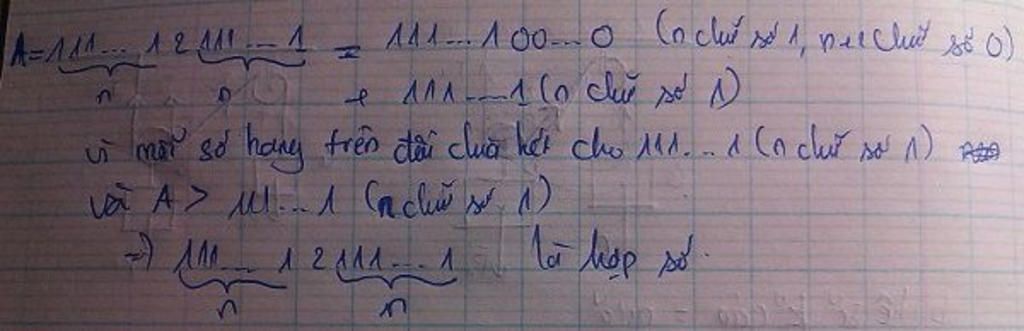 A = 111... 1 2 111 ... 1 = 111...1 00...0 (n chữ số 1, n+1 chữ số 0)
n n + 111....1 (n chữ số 1)
vì mỗi số hạng trên đều chia hết cho 111... 1 (n chữ số 1)
và A > 111...1 (n chữ số 1)
=) 111.... 1 2 111... 1 là hợp số.
n n